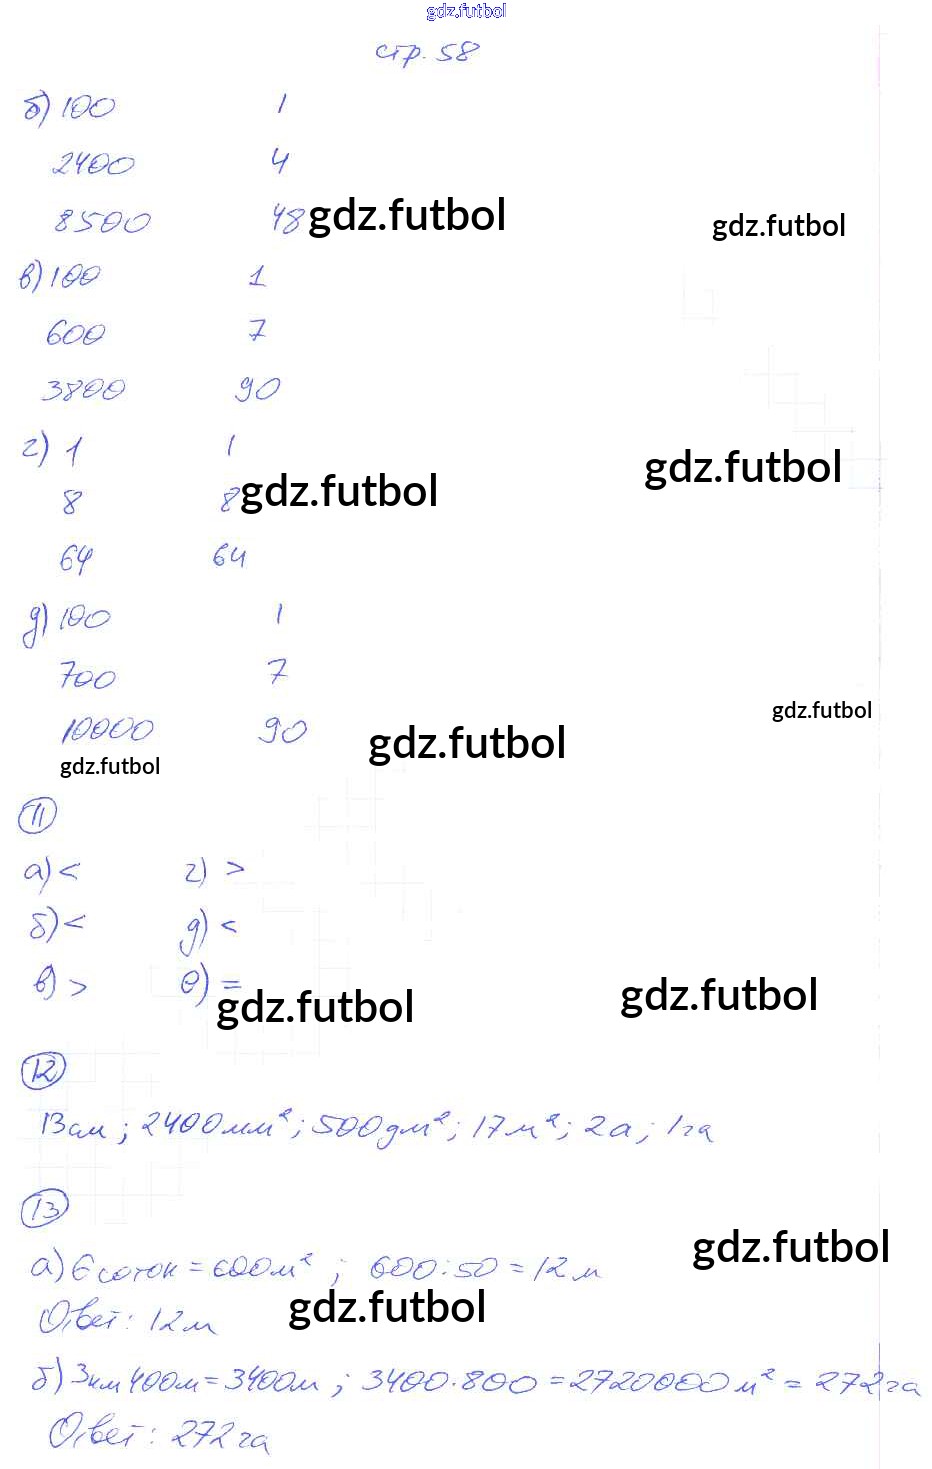 gdz.futbol
стр. 58
б) 100 1
2400 4
8500 48 gdz.futbol gdz.futbol
в) 100 1
600 7
3800 90
г) 1 1
8 8 gdz.futbol gdz.futbol
64 64
д) 100 1
700 7
10000 90 gdz.futbol gdz.futbol
gdz.futbol
11
а) < г) >
б) < д) <
в) > е) =
gdz.futbol gdz.futbol
12
13 см ; 2400 мм² ; 500 дм² ; 17 м² ; 2а ; 1 га
13
а) 6 соток = 600 м² ; 600 : 50 = 12 м gdz.futbol
Ответ : 12 м gdz.futbol
б) 3 км 400 м = 3400 м ; 3400 · 800 = 2720000 м² = 272 га
Ответ : 272 га